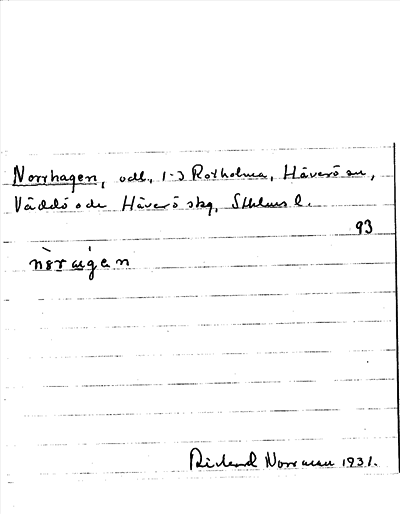 Norrhagen, odl., 1-3 Rotholma, Häverö sn,
Väddö o de Häverö skg, Sthlms l.
93
nòrαígen
Rickard Norrman 1931.